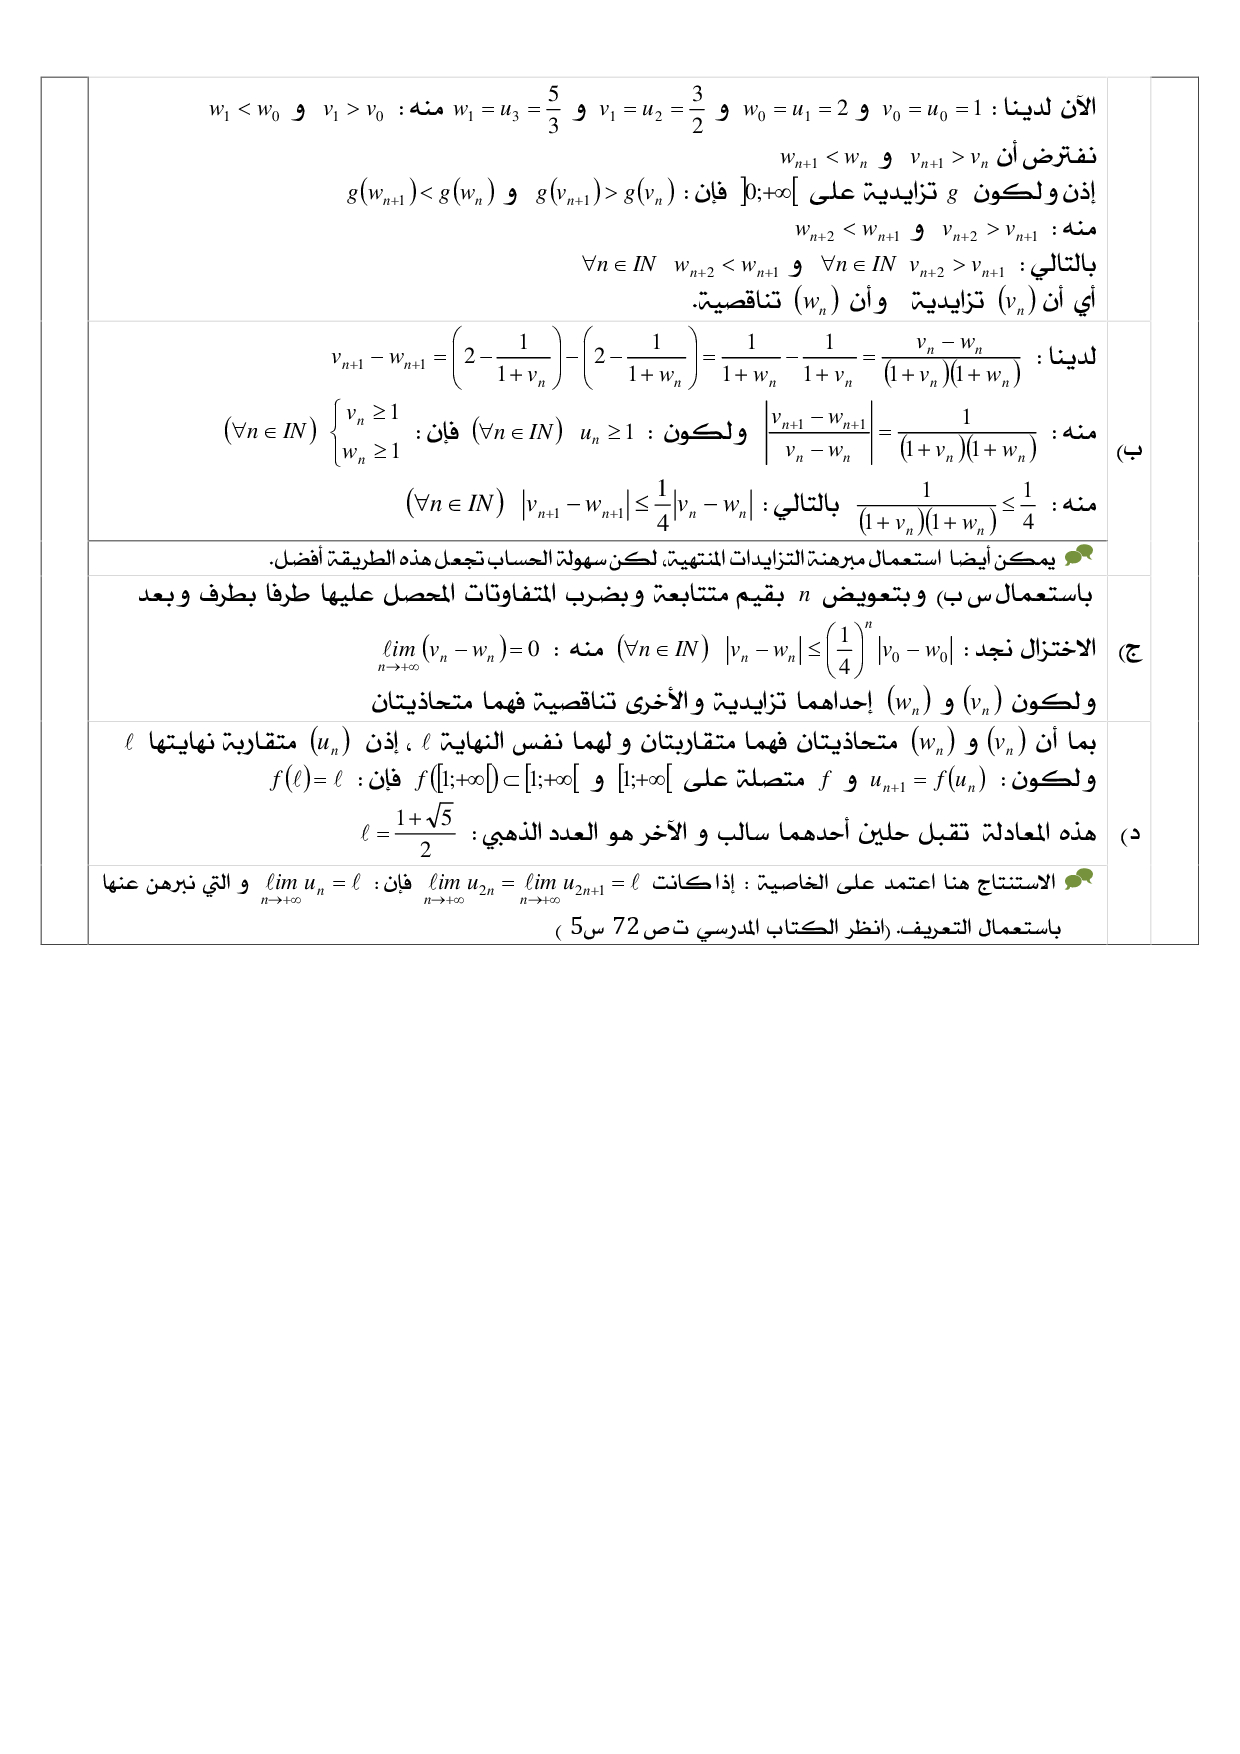 الآن لدينا : v₀ = u₀ = 1 و w₀ = u₁ = 2 و v₁ = u₂ = 3/2 و w₁ = u₃ = 5/3 منه : v₁ > v₀ و w₁ < w₀
نفترض أن vₙ₊₁ > vₙ و wₙ₊₁ < wₙ
إذن ولكون g تزايدية على ]0;+∞[ فإن : g(vₙ₊₁) > g(vₙ) و g(wₙ₊₁) < g(wₙ)
منه : vₙ₊₂ > vₙ₊₁ و wₙ₊₂ < wₙ₊₁
بالتالي : ∀n ∈ IN vₙ₊₂ > vₙ₊₁ و ∀n ∈ IN wₙ₊₂ < wₙ₊₁
أي أن (vₙ) تزايدية وأن (wₙ) تناقصية.
لدينا : vₙ₊₁ − wₙ₊₁ = (2 − 1/(1+vₙ)) − (2 − 1/(1+wₙ)) = 1/(1+wₙ) − 1/(1+vₙ) = (vₙ − wₙ)/((1+vₙ)(1+wₙ))
ب) منه : |(vₙ₊₁ − wₙ₊₁)/(vₙ − wₙ)| = 1/((1+vₙ)(1+wₙ)) ولكون : uₙ ≥ 1 (∀n ∈ IN) فإن : { vₙ ≥ 1 wₙ ≥ 1 (∀n ∈ IN)
منه : 1/((1+vₙ)(1+wₙ)) ≤ 1/4 بالتالي : |vₙ₊₁ − wₙ₊₁| ≤ 1/4 |vₙ − wₙ| (∀n ∈ IN)
يمكن أيضا استعمال مبرهنة التزايدات المنتهية، لكن سهولة الحساب تجعل هذه الطريقة أفضل.
باستعمال س ب) وبتعويض n بقيم متتابعة وبضرب المتفاوتات المحصل عليها طرفا بطرف وبعد
ج) الاختزال نجد : |vₙ − wₙ| ≤ (1/4)ⁿ |v₀ − w₀| (∀n ∈ IN) منه : ℓim n→+∞ (vₙ − wₙ) = 0
ولكون (vₙ) و (wₙ) إحداهما تزايدية والأخرى تناقصية فهما متحاذيتان
بما أن (vₙ) و (wₙ) متحاذيتان فهما متقاربتان ولهما نفس النهاية ℓ ، إذن (uₙ) متقاربة نهايتها ℓ
ولكون : uₙ₊₁ = f(uₙ) و f متصلة على [1;+∞[ و f([1;+∞[) ⊂ [1;+∞[ فإن : f(ℓ) = ℓ
د) هذه المعادلة تقبل حلين أحدهما سالب و الآخر هو العدد الذهبي : ℓ = (1+√5)/2
الاستنتاج هنا اعتمد على الخاصية : إذا كانت ℓim n→+∞ u₂ₙ = ℓim n→+∞ u₂ₙ₊₁ = ℓ فإن : ℓim n→+∞ uₙ = ℓ و التي نبرهن عنها
باستعمال التعريف. (انظر الكتاب المدرسي ت ص 72 س5 )